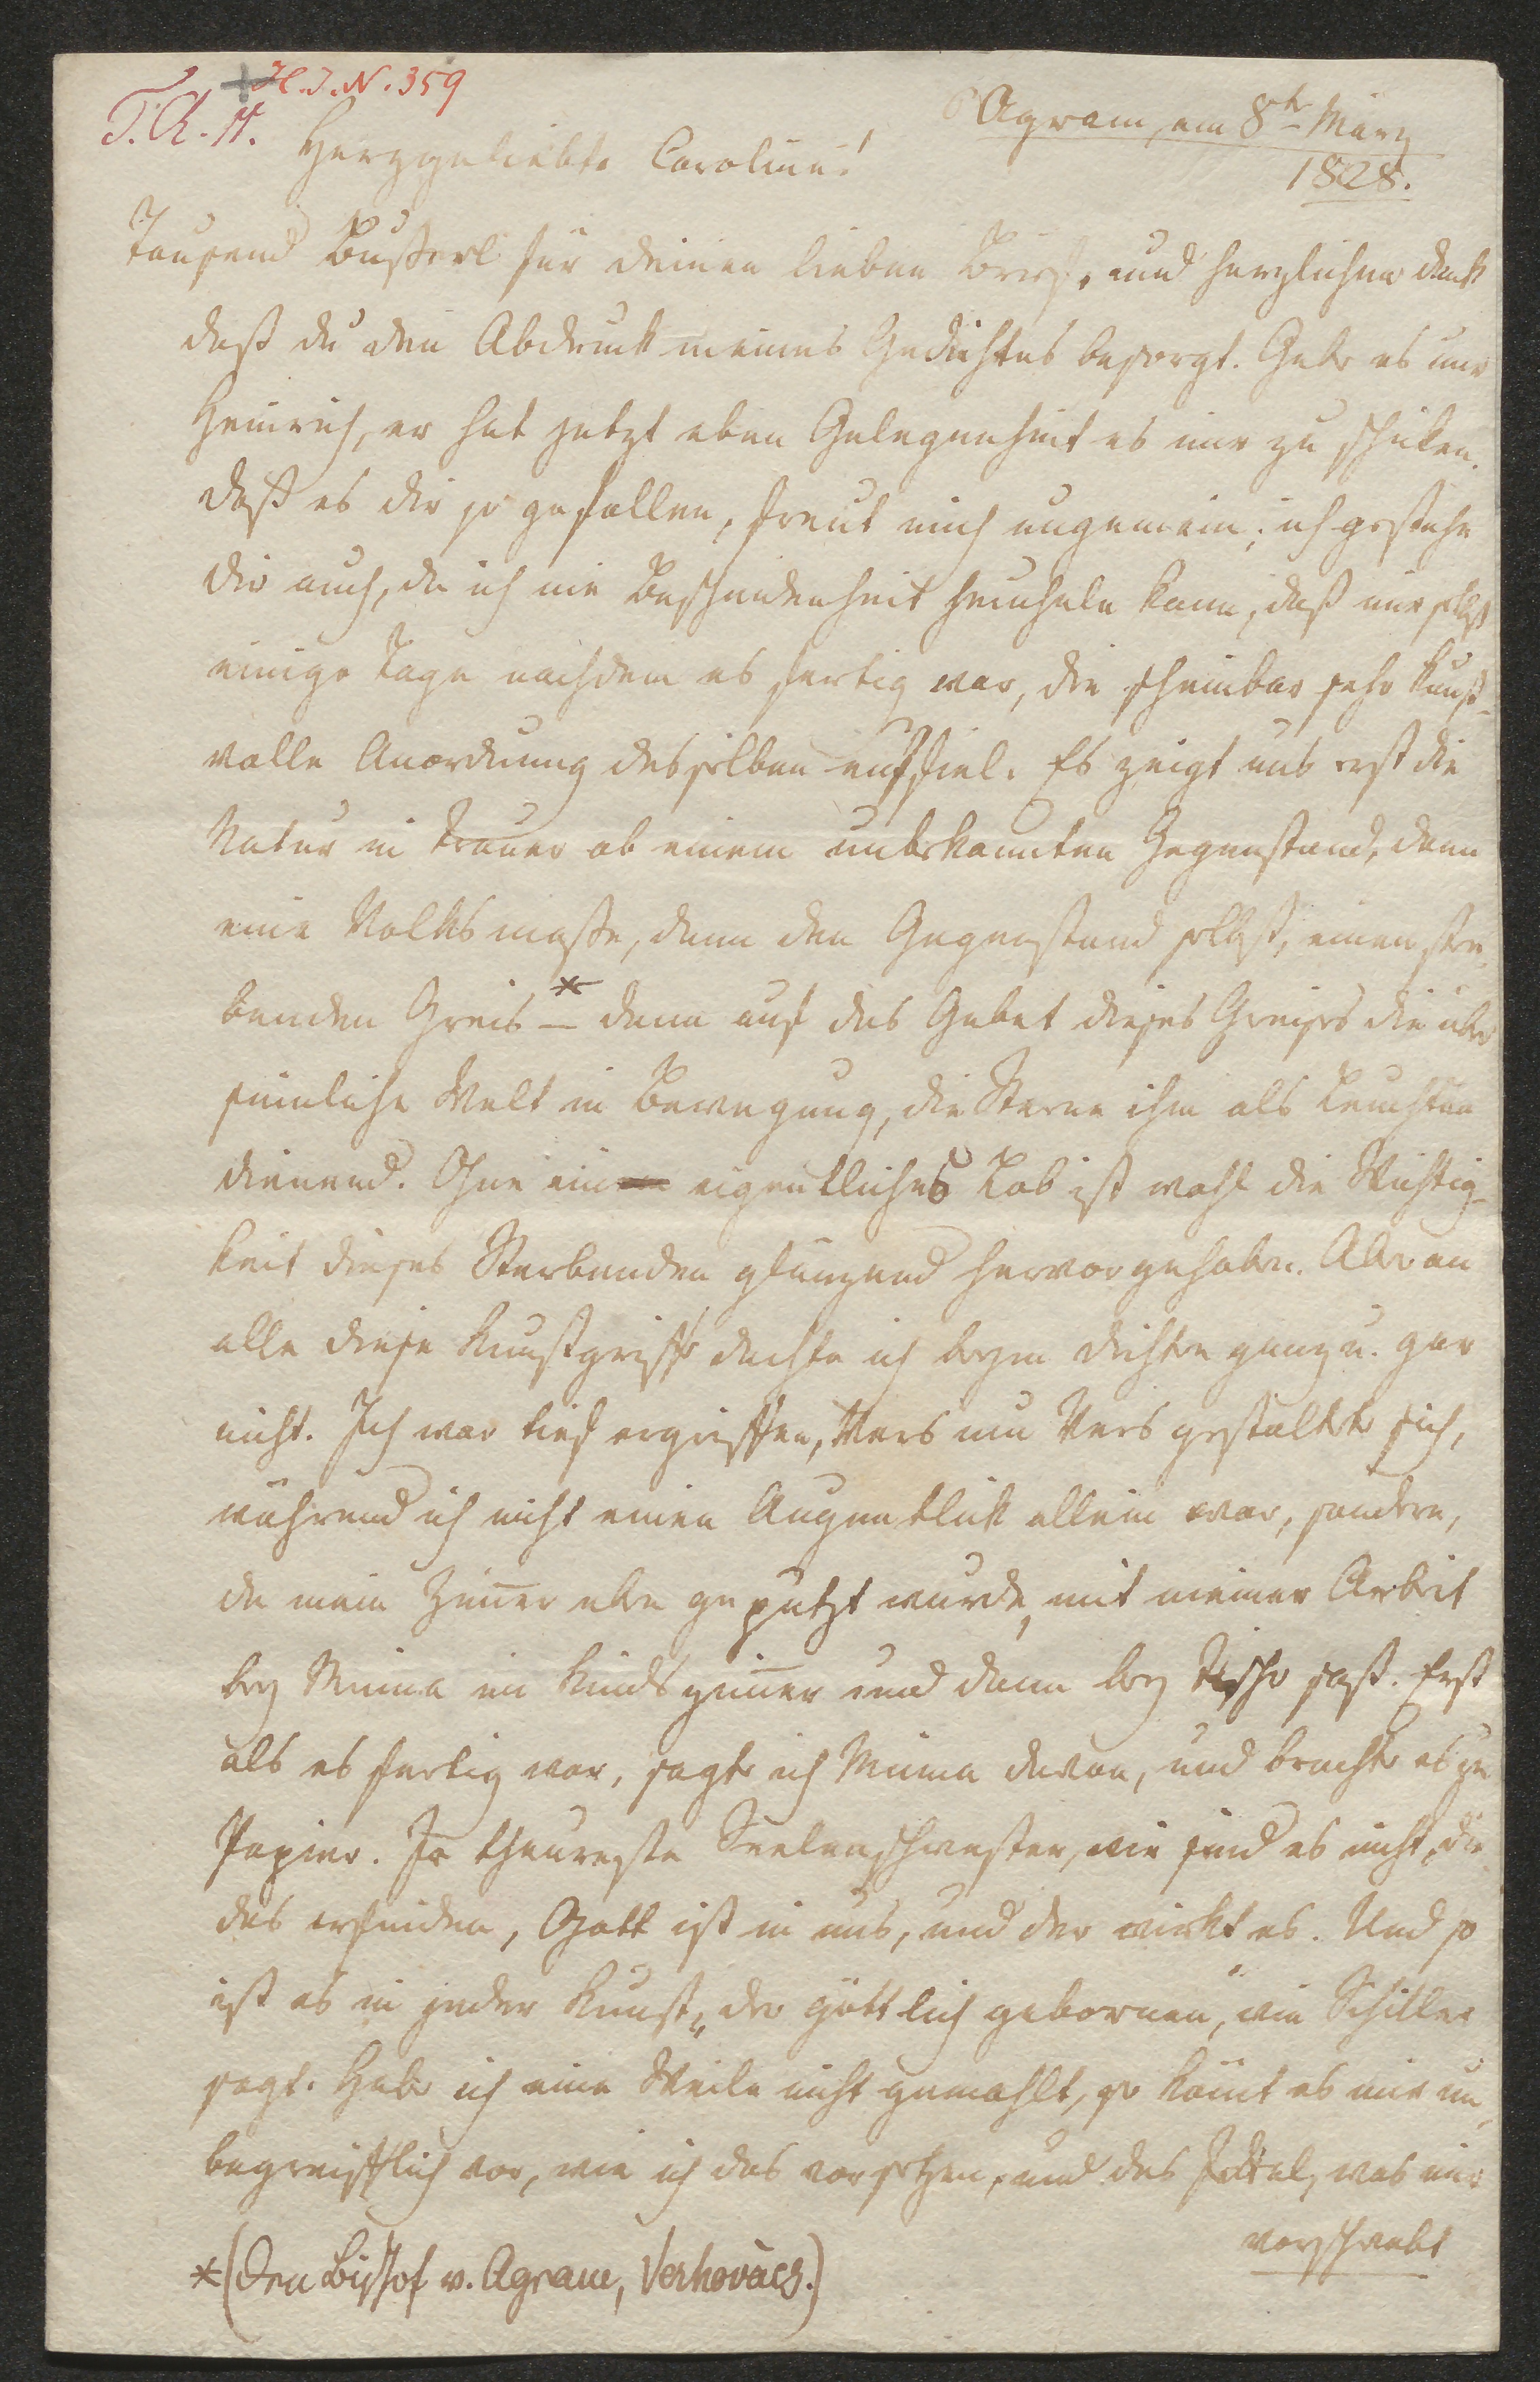 H.I.N. 359
T.A.11.
Agram, am 8t März
1828.
Herzgeliebte Caroline!
Tausend Busserl für deinen lieben Brief, und herzlichen Dank
daß du den Abdruck meines Gedichtes besorgt. Gebe es nur
Heinrich, er hat jetzt eben Gelegenheit es mir zu schicken.
daß es dir so gefallen, freut mich ungemein; ich gestehe
dir auch, da ich nie Bescheidenheit heucheln kann, daß mir selbst
einige Tage nachdem es fertig war, die scheinbar sehr kunst-
volle Anordnung desselben auffiel. Es zeigt uns erst die
Natur in Trauer ob einem unbekannten Gegenstand, dann
eine Volksmasse, dann den Gegenstand selbst, einen ster-
benden Greis * – dann auf das Gebet dieses Greises die über
sinnliche Welt in Bewegung, die Sterne ihm als Leuchten
dienend. Ohne ein eigentliches Lob ist wohl die Wichtig-
keit dieses Sterbenden glänzend hervorgehoben. Aber an
alle diese Kunstgriffe dachte ich beym dichten ganz u. gar
nicht. Ich war tief ergriffen, Vers um Vers gestaltete sich,
während ich nicht einen Augenblick allein war, sondern,
da mein Zimer eben geputzt wurde, mit meiner Arbeit
bey Mimma im Kindszimer und dann bey Tische saß. Erst
als es fertig war, sagte ich Mimma davon, und brachte es zu
Papier. Ja theureste Seelenschwester, wir sind es nicht, die
das erfinden, Gott ist in uns, und der wirkt es. Und so
ist es in jeder Kunst, „der göttlich gebornen", wie Schiller
sagt. Habe ich eine Weile nicht gemahlt, so kömt es mir un-
begreifflich vor, wie ich das vorsehen, und das Ideal, was mir
vorschwebt
*(Den Bischof v. Agram, Verhovacs.)